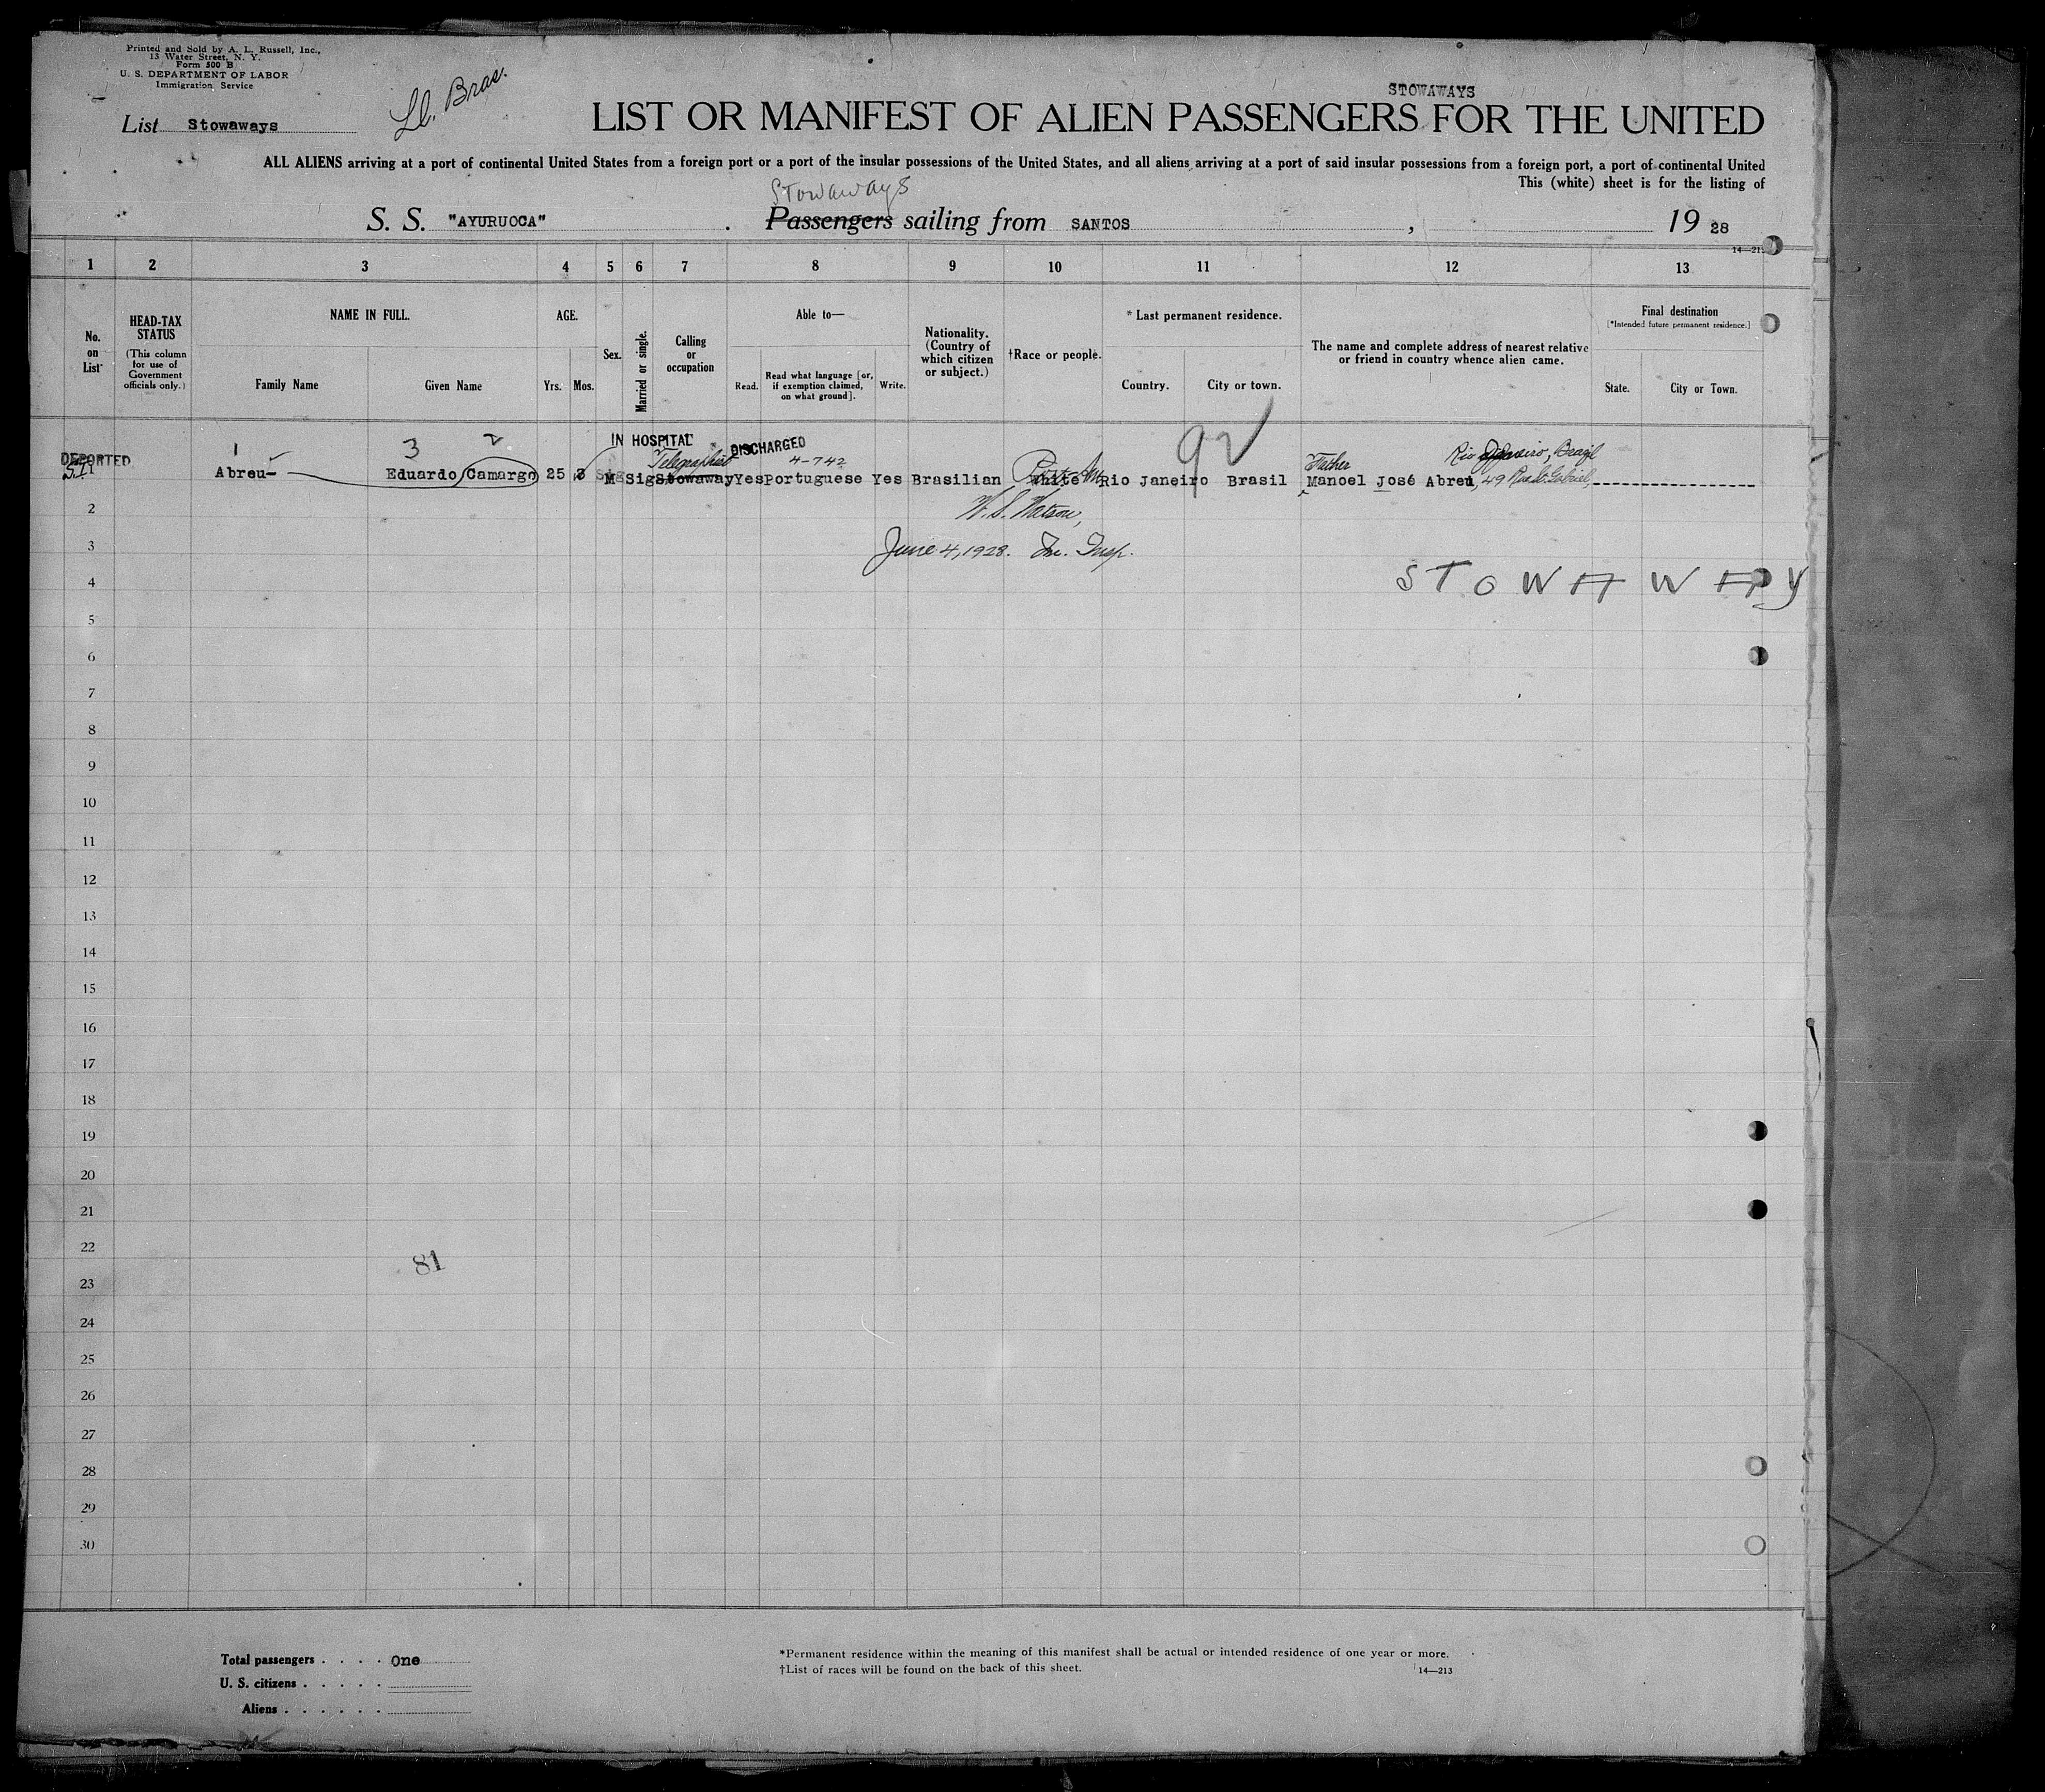 Printed and Sold by A. L. Russell, Inc.,
13 Water Street, N. Y.
Form 500 B
U. S. DEPARTMENT OF LABOR
Immigration Service
Ll. Bras.
List Stowaways
STOWAWAYS
LIST OR MANIFEST OF ALIEN PASSENGERS FOR THE UNITED
ALL ALIENS arriving at a port of continental United States from a foreign port or a port of the insular possessions of the United States, and all aliens arriving at a port of said insular possessions from a foreign port, a port of continental United
This (white) sheet is for the listing of
Stowaways
S. S. "AYURUOCA" . Passengers sailing from SANTOS , 19 28
1 2 3 4 5 6 7 8 9 10 11 12 13
No. on List
HEAD-TAX STATUS (This column for use of Government officials only.)
NAME IN FULL.
Family Name Given Name
AGE.
Yrs. Mos.
Sex.
Married or single.
Calling or occupation
Able to—
Read. Read what language [or, if exemption claimed, on what ground]. Write.
Nationality. (Country of which citizen or subject.)
†Race or people.
* Last permanent residence.
Country. City or town.
The name and complete address of nearest relative or friend in country whence alien came.
Final destination
[*Intended future permanent residence.]
State. City or Town.
1 3 2 IN HOSPITAL DISCHARGED 92
DEPORTED Telegraphist 4-742 Father Rio Janeiro, Brazil
Abreu- Eduardo Camargo 25 3 M Sig Stowaway Yes Portuguese Yes Brasilian White Rio Janeiro Brasil Manoel José Abreu, 49
2 W. S. Watson,
3 June 4, 1928. Im. Insp.
4 STOWAWAY
5
6
7
8
9
10
11
12
13
14
15
16
17
18
19
20
21
22
81
23
24
25
26
27
28
29
30
Total passengers . . . . One
U. S. citizens . . . . .
Aliens . . . . . .
*Permanent residence within the meaning of this manifest shall be actual or intended residence of one year or more.
†List of races will be found on the back of this sheet. 14—213